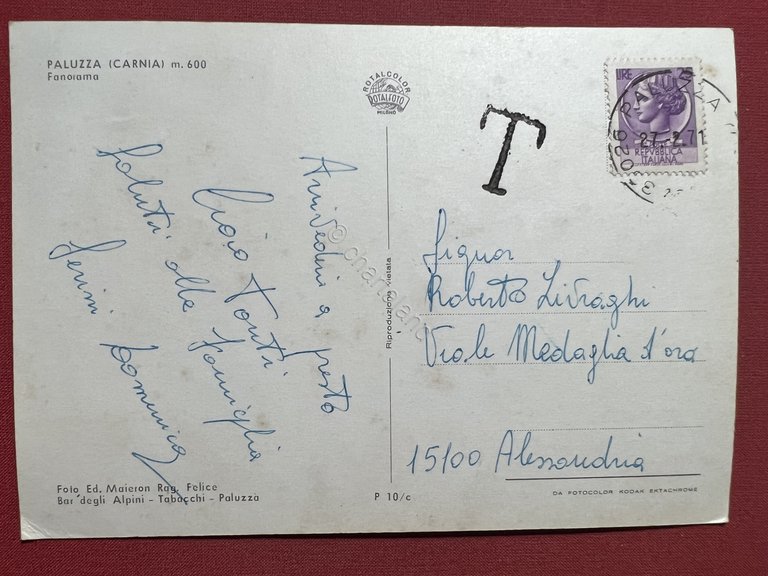 PALUZZA (CARNIA) m. 600
Panorama
ROTALCOLOR
ROTALFOTO
MILANO
T
LIRE 25
REPVBBLICA
ITALIANA
PALUZZA
27.-2.71
Arrivederci a presto
Ciao Tanti
Saluti alla famiglia
© chartaland
Riproduzione vietata
Signor
Roberto Livraghi
Viale Medaglia d'oro
15100 Alessandria
Foto Ed. Maieron Rag. Felice
Bar degli Alpini - Tabacchi - Paluzza
P 10/c
DA FOTOCOLOR KODAK EKTACHROME